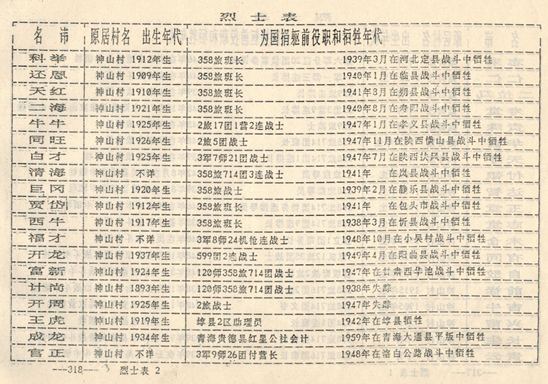 烈士表
名讳 原居村名 出生年代 为国捐躯前役职和牺牲年代
科举 神山村 1912年生 358旅班长 1939年3月在河北定县战斗中牺牲
还恩 神山村 1909年生 358旅班长 1940年1月在临县战斗中牺牲
天红 神山村 1910年生 358旅班长 1941年8月在朔县战斗中牺牲
二海 神山村 1921年生 358旅班长 1940年8月在寿阳战斗中牺牲
牛牛 神山村 1925年生 2旅17团1营2连战士 1947年1月在孝义县战斗中牺牲
同旺 神山村 1926年生 2旅5团战士 1947年11月在陕西横山县战斗中牺牲
白才 神山村 1925年生 3军7师21团战士 1947年7月在陕西扶风县战斗中牺牲
清海 神山村 不详 358旅714团3连战士 1941年 在岚县战斗中牺牲
巨冈 神山村 1920年生 358旅战士 1939年2月在静乐县战斗中牺牲
贾岱 神山村 1912年生 358旅班长 1941年 在包头市战斗中牺牲
西牛 神山村 1917年生 358旅班长 1938年3月在忻县战斗中牺牲
福才 神山村 不详 3军8师24机枪连战士 1948年10月在小吴村战斗中牺牲
开龙 神山村 1937年生 599团2连战士 1949年4月在阳曲县战斗中牺牲
富新 神山村 1924年生 120师358旅714团战士 1947年在甘肃西华池战斗中牺牲
计尚 神山村 1893年生 120师358旅714团战士 1938年失踪
开周 神山村 1925年生 2旅战士 1947年失踪
王虎 神山村 1919年生 崞县2区助理员 1942年在崞县牺牲
成龙 神山村 1934年生 青海贵德县红星公社会计 1959年在青海大通县平叛中牺牲
官正 神山村 不详 3军9师26团付营长 1948年在洛白公路战斗中牺牲
---318--- 烈士表 2